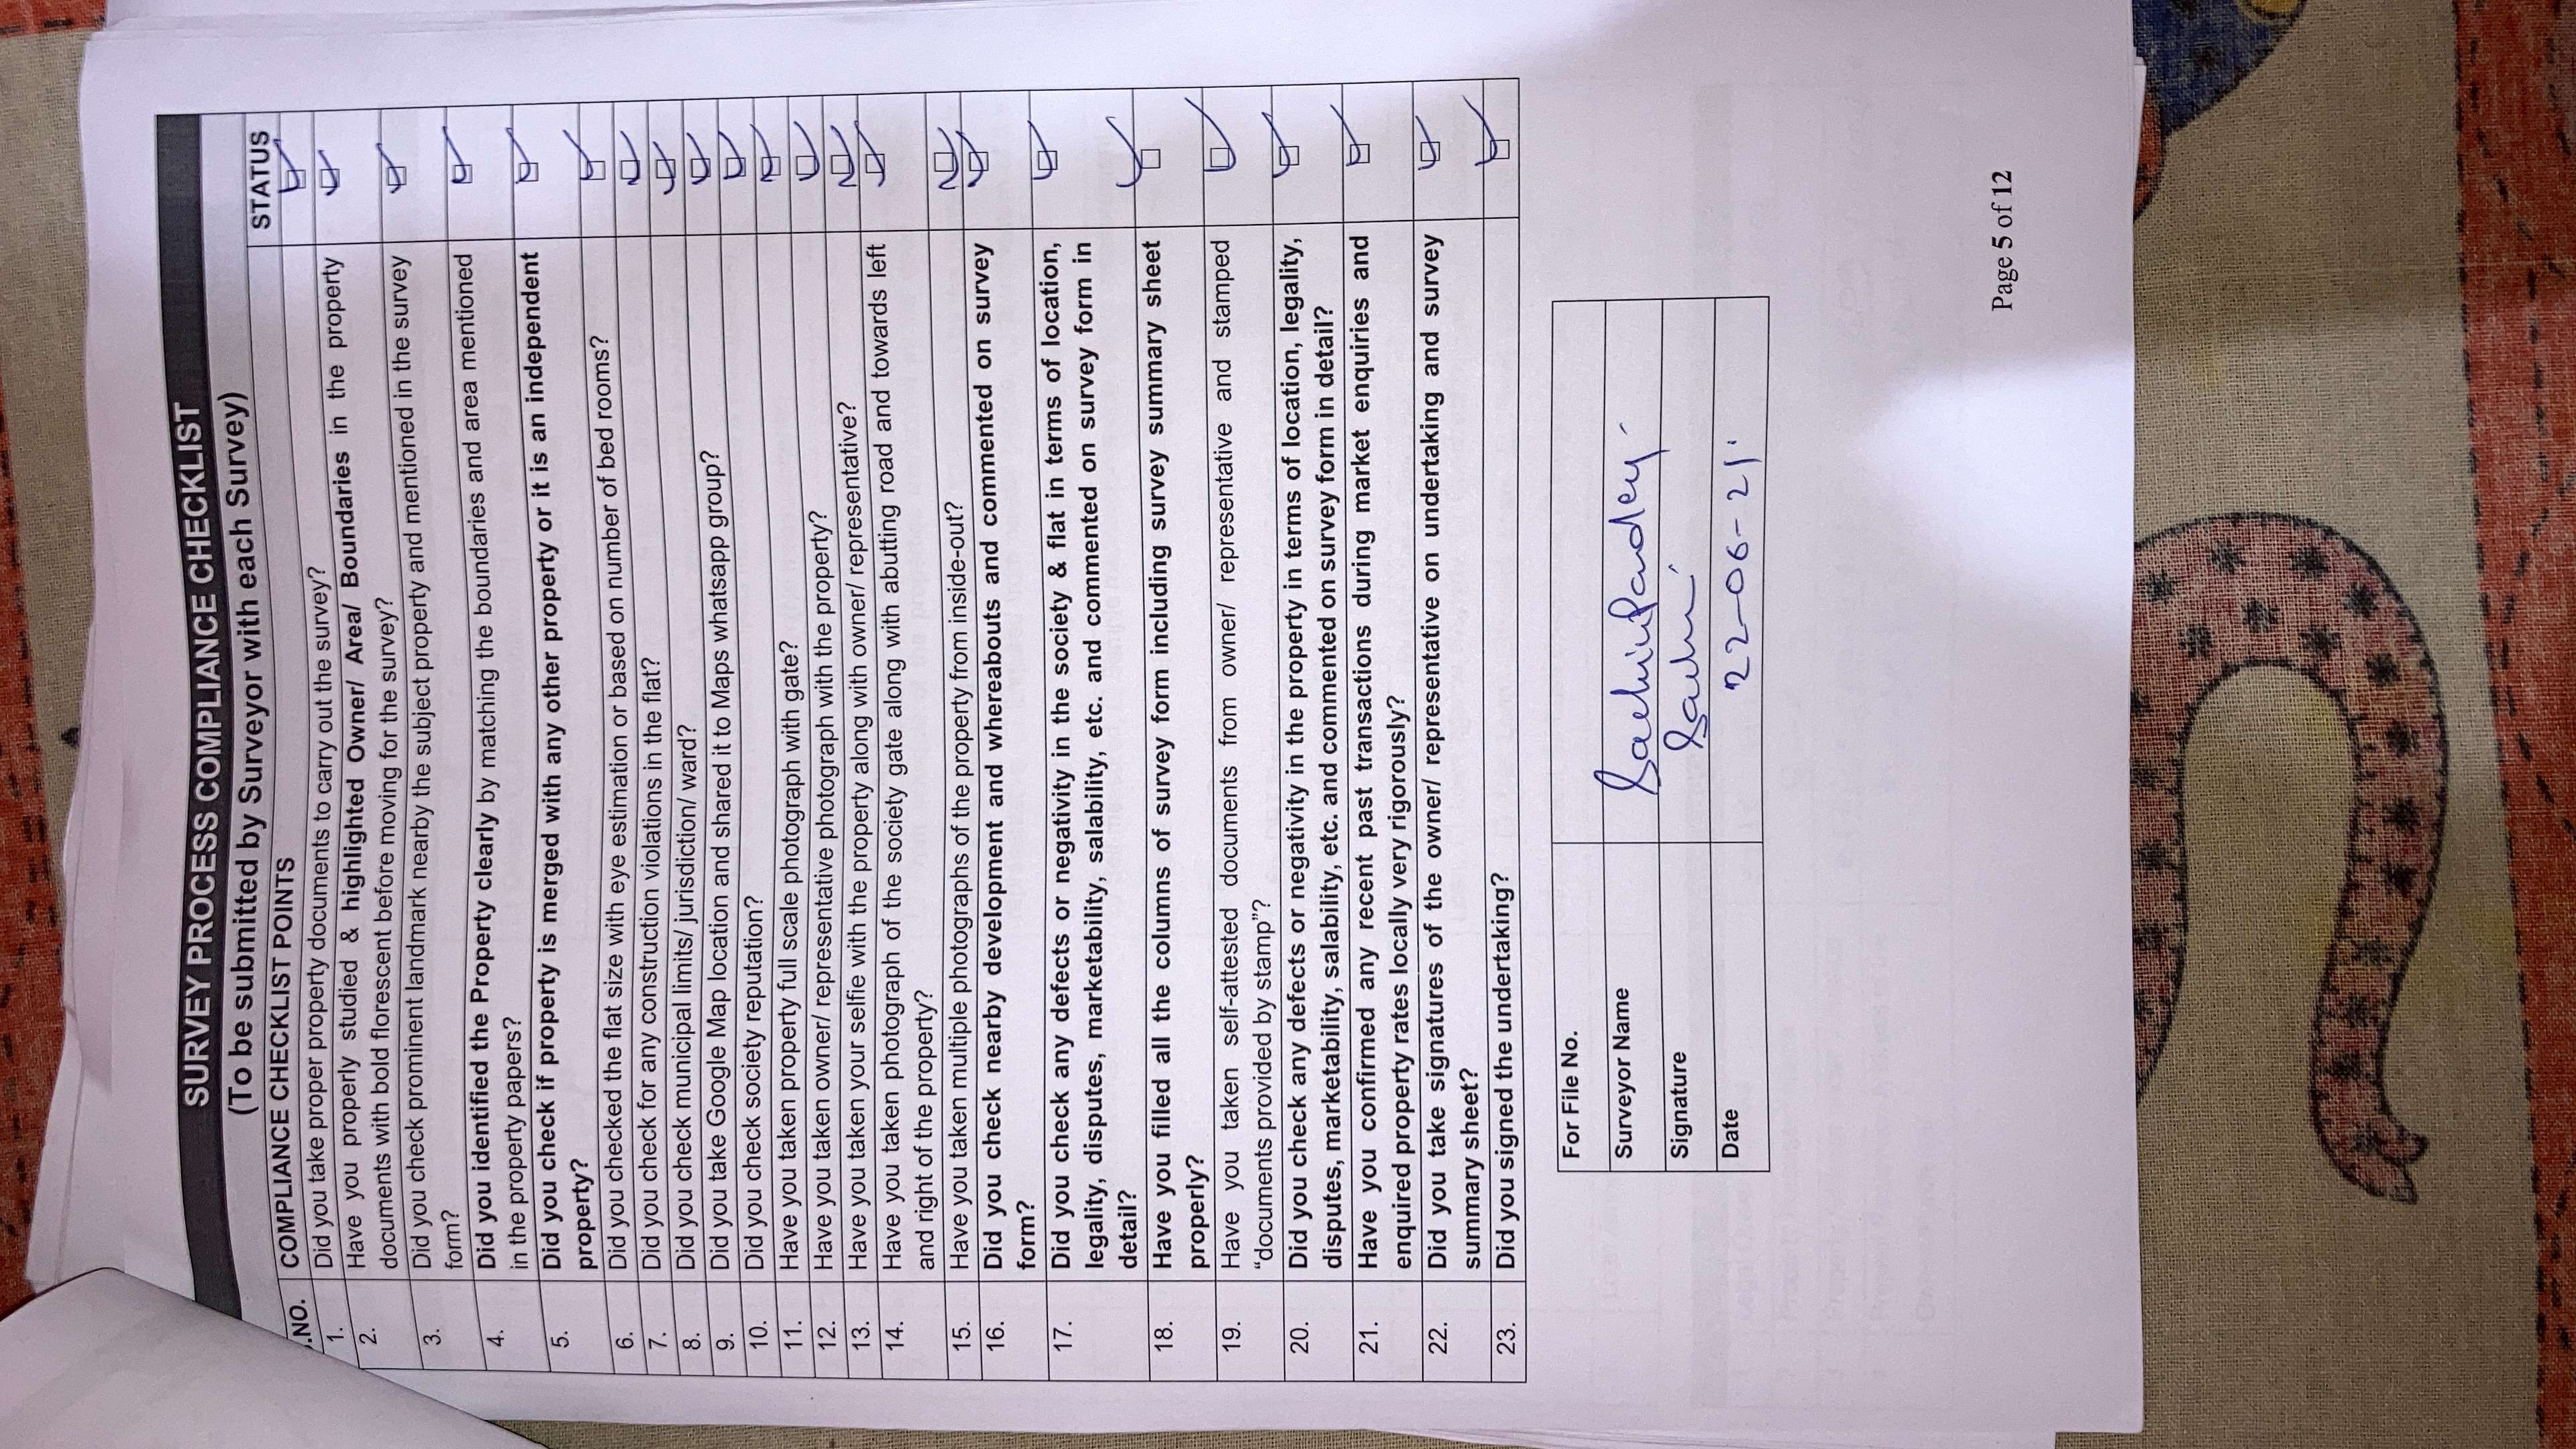 SURVEY PROCESS COMPLIANCE CHECKLIST
(To be submitted by Surveyor with each Survey)
.NO. COMPLIANCE CHECKLIST POINTS STATUS
1. Did you take proper property documents to carry out the survey?
2. Have you properly studied & highlighted Owner/ Area/ Boundaries in the property
documents with bold florescent before moving for the survey?
3. Did you check prominent landmark nearby the subject property and mentioned in the survey
form?
4. Did you identified the Property clearly by matching the boundaries and area mentioned
in the property papers?
5. Did you check if property is merged with any other property or it is an independent
property?
6. Did you checked the flat size with eye estimation or based on number of bed rooms?
7. Did you check for any construction violations in the flat?
8. Did you check municipal limits/ jurisdiction/ ward?
9. Did you take Google Map location and shared it to Maps whatsapp group?
10. Did you check society reputation?
11. Have you taken property full scale photograph with gate?
12. Have you taken owner/ representative photograph with the property?
13. Have you taken your selfie with the property along with owner/ representative?
14. Have you taken photograph of the society gate along with abutting road and towards left
and right of the property?
15. Have you taken multiple photographs of the property from inside-out?
16. Did you check nearby development and whereabouts and commented on survey
form?
17. Did you check any defects or negativity in the society & flat in terms of location,
legality, disputes, marketability, salability, etc. and commented on survey form in
detail?
18. Have you filled all the columns of survey form including survey summary sheet
properly?
19. Have you taken self-attested documents from owner/ representative and stamped
“documents provided by stamp”?
20. Did you check any defects or negativity in the property in terms of location, legality,
disputes, marketability, salability, etc. and commented on survey form in detail?
21. Have you confirmed any recent past transactions during market enquiries and
enquired property rates locally very rigorously?
22. Did you take signatures of the owner/ representative on undertaking and survey
summary sheet?
23. Did you signed the undertaking?
For File No.
Surveyor Name Sachin Pandey
Signature
Date 22-06-21
Page 5 of 12